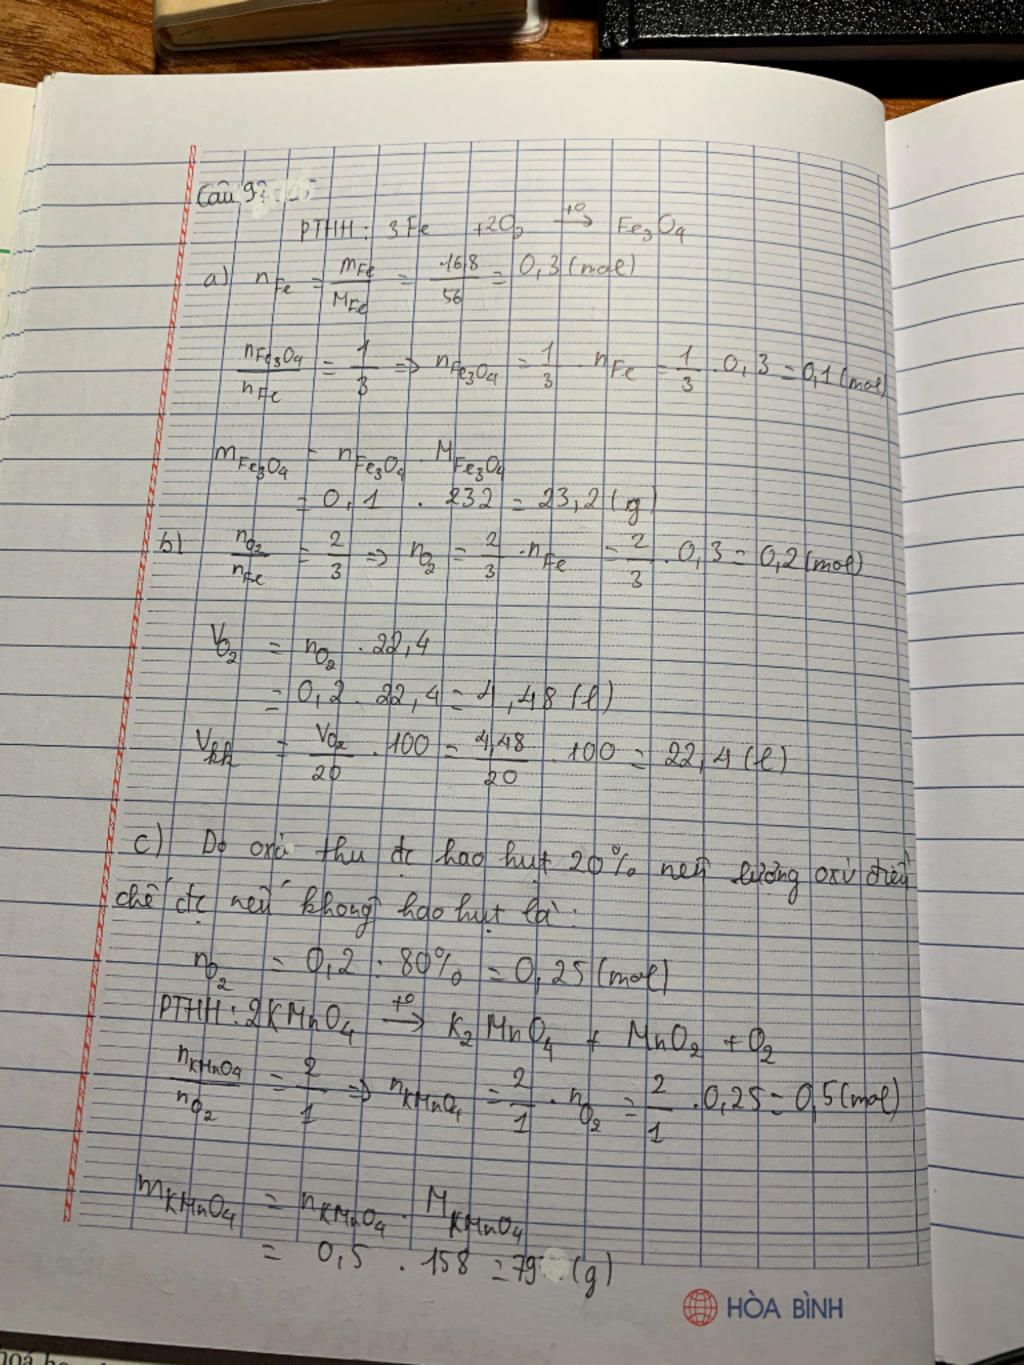 Câu 9:
PTHH: 3Fe +2O₂ →(t⁰) Fe₃O₄
a) n_Fe = m_Fe/M_Fe = 16,8/56 = 0,3 (mol)
n_Fe₃O₄/n_Fe = 1/3 => n_Fe₃O₄ = 1/3 . n_Fe = 1/3 . 0,3 = 0,1 (mol)
m_Fe₃O₄ = n_Fe₃O₄ . M_Fe₃O₄
= 0,1 . 232 = 23,2 (g)
b) n_O₂/n_Fe = 2/3 => n_O₂ = 2/3 . n_Fe = 2/3 . 0,3 = 0,2 (mol)
V_O₂ = n_O₂ . 22,4
= 0,2 . 22,4 = 4,48 (l)
V_kk = V_O₂/20 . 100 = 4,48/20 . 100 = 22,4 (l)
c) Do oxi thu đc hao hụt 20% nên lượng oxi điều
chế đc nếu không hao hụt là:
n_O₂ = 0,2 : 80% = 0,25 (mol)
PTHH: 2KMnO₄ →(t⁰) K₂MnO₄ + MnO₂ + O₂
n_KMnO₄/n_O₂ = 2/1 => n_KMnO₄ = 2/1 . n_O₂ = 2/1 . 0,25 = 0,5 (mol)
m_KMnO₄ = n_KMnO₄ . M_KMnO₄
= 0,5 . 158 = 79 (g)
HÒA BÌNH